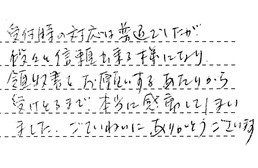 受付時の対応は普通でしたが
段々と信頼出来る様になり
領収書をお願いするあたりから
受けとるまで本当に感動してしまい
ました。ごていねいにありがとうございます